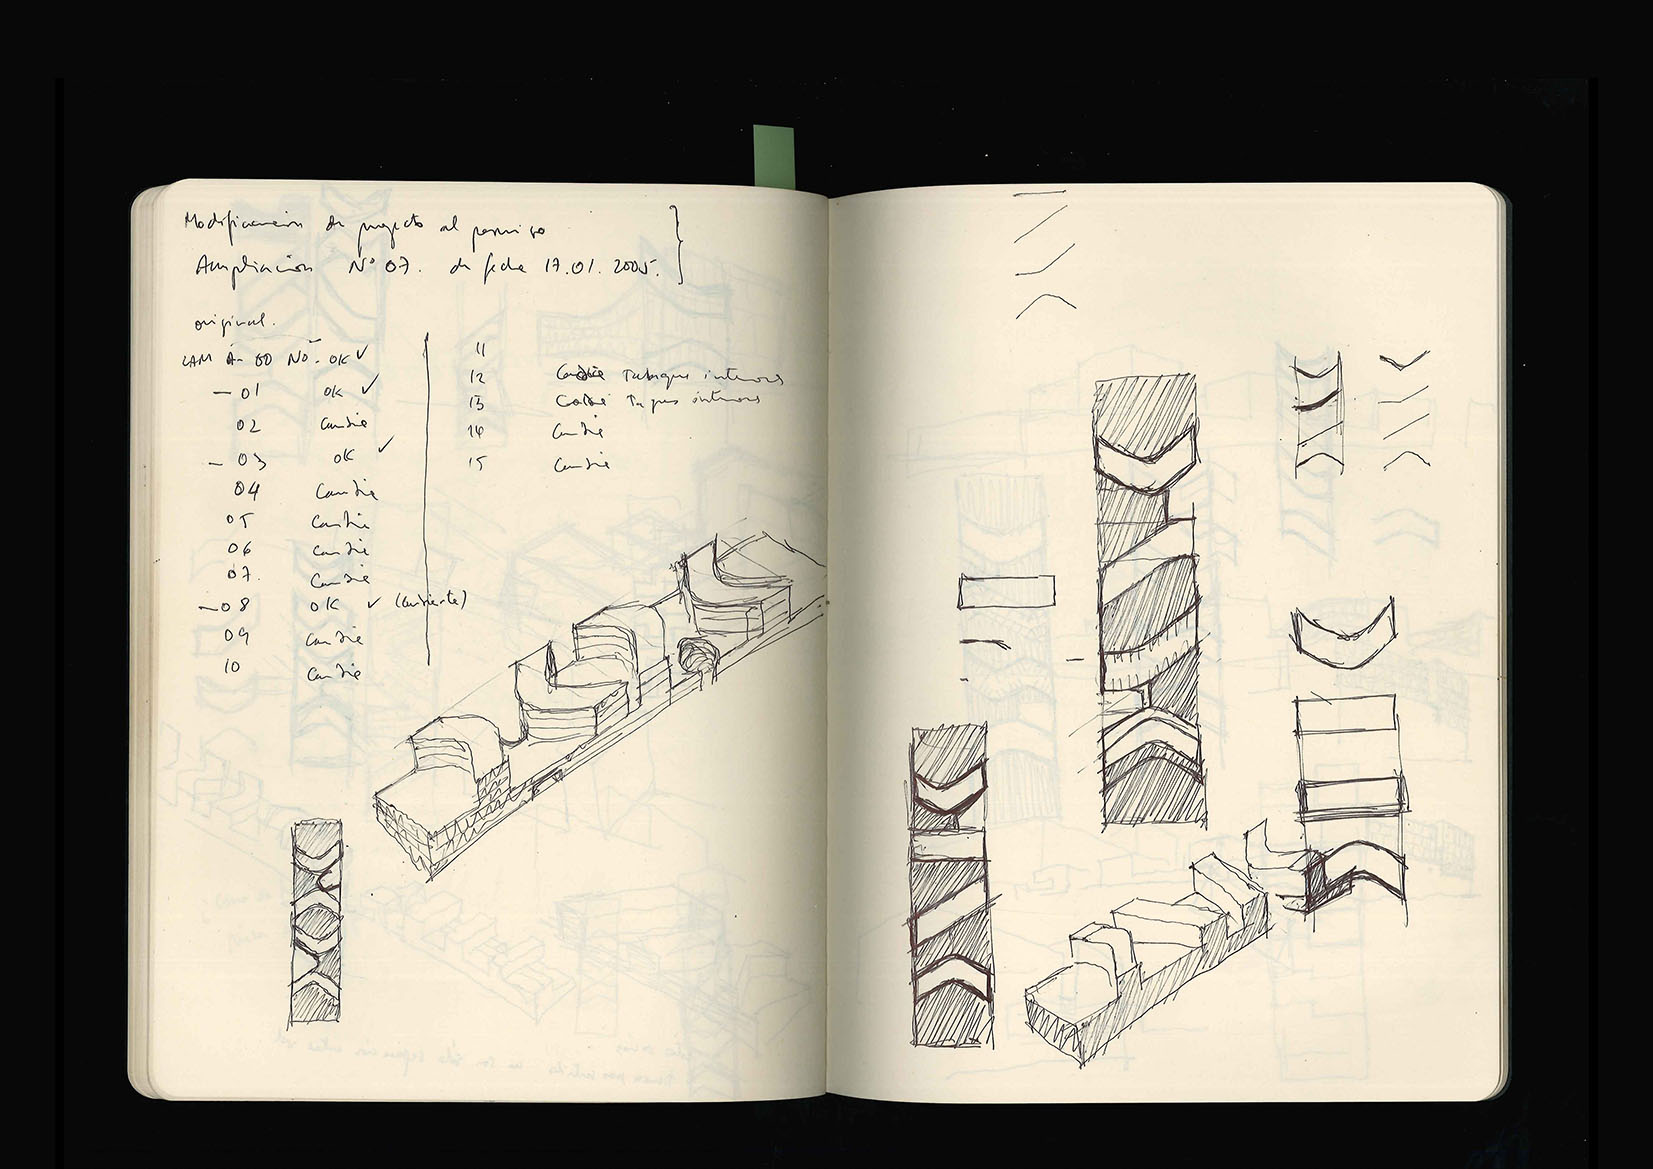 Modificación de proyecto al permiso
Ampliación N° 07. de fecha 17.01.2005.
original.
LAM A-00 NO. OK ✓
— 01 OK ✓
02 Cambia
— 03 OK ✓
04 Cambia
05 Cambia
06 Cambia
07. Cambia
— 08 OK ✓
09 Cambia
10 Cambia
11
12 Cambia Tabiques interiores
13 Cambia interiores
14 Cambia
15 Cambia